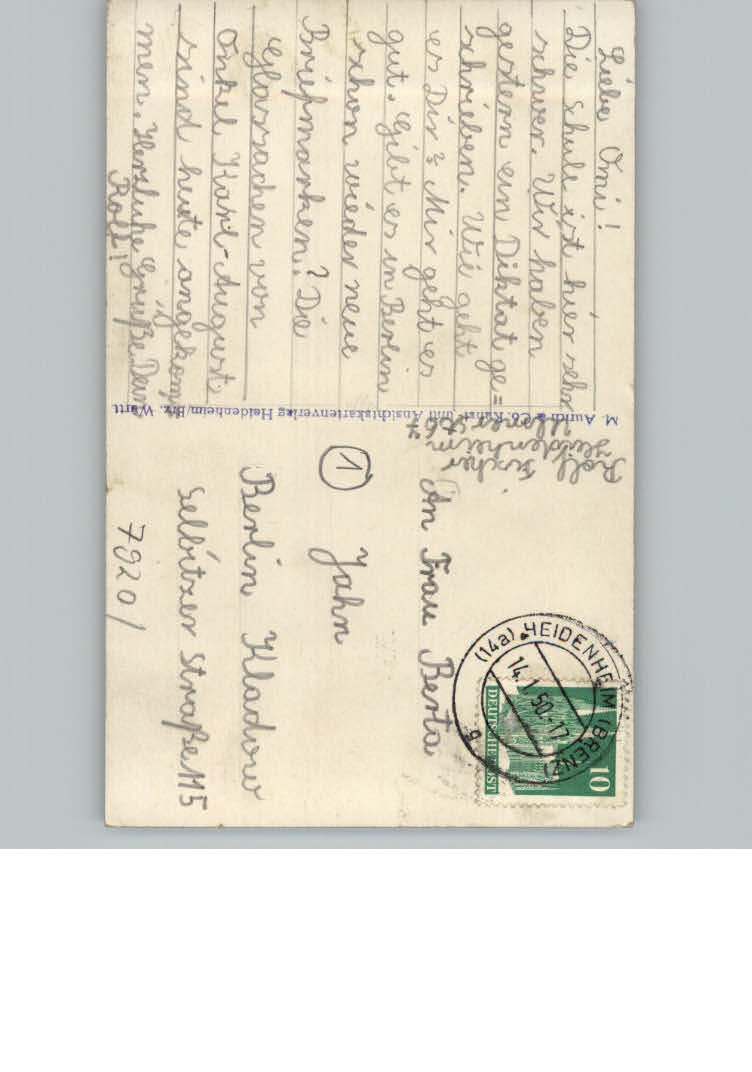 Liebe Omi!
Die Schule ist hier sehr
schwer. Wir haben
gestern ein Diktat ge=
schrieben. Wie geht
es Dir? Mir geht es
gut. Gibt es in Berlin
schon wieder neue
Briefmarken? Die
Glassachen von
Onkel Karl-August
sind heute angekom=
men. Herzliche Grüße Dein
Rolf!
M. Aurich & Co. Kunst- und Ansichtskartenverlag Heidenheim/Brz. Württ.
Rolf Fischer
Heidenheim
An Frau Berta
Jahn
1
Berlin Kladow
Selbitzer Straße 115
7920/
(14a) HEIDENHEIM (BRENZ)
14.1.50.-17
DEUTSCHE POST
10